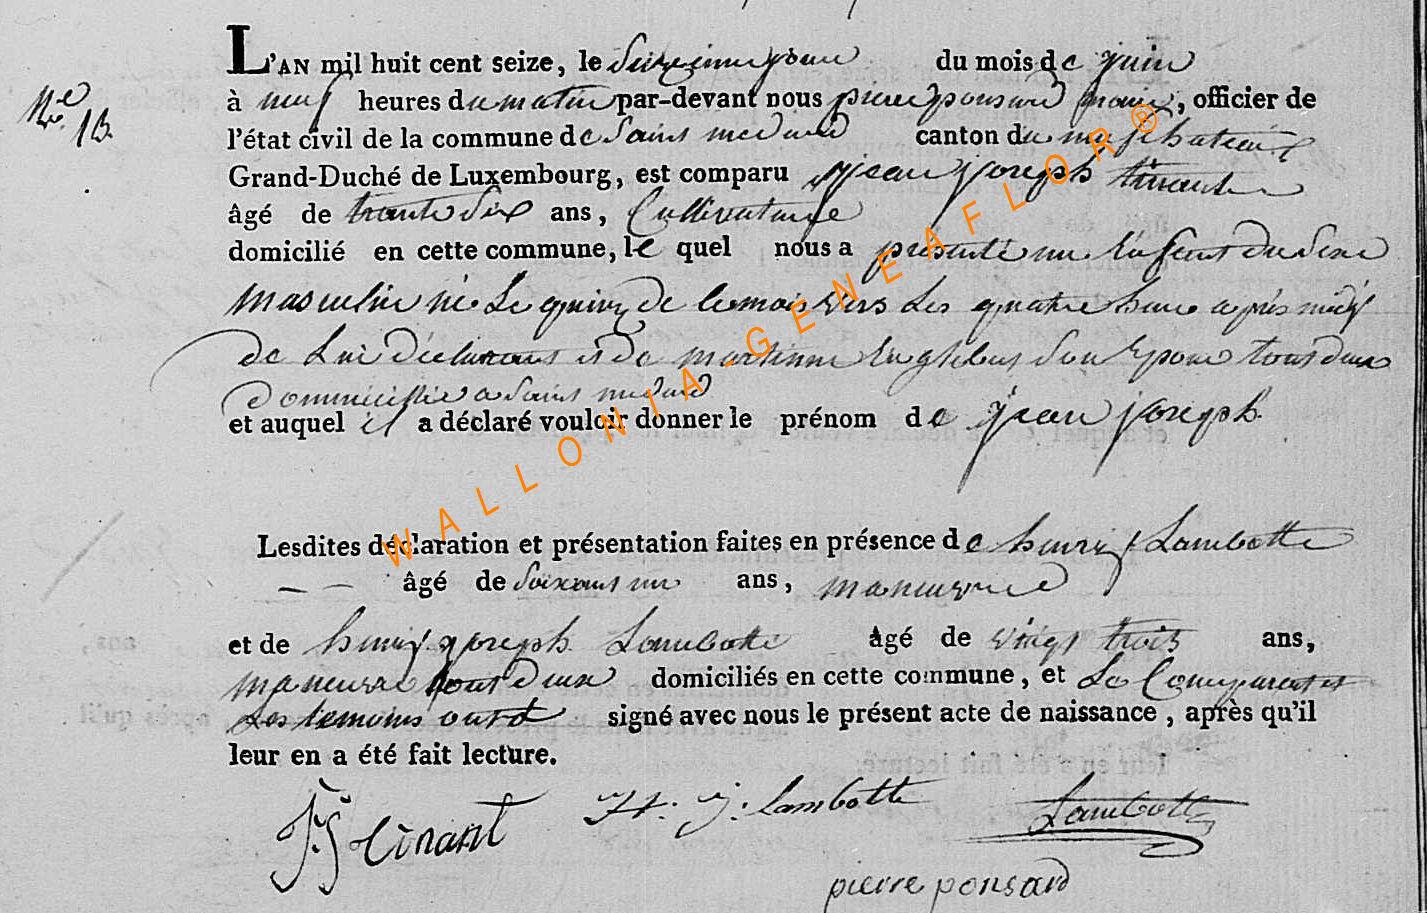 L'AN mil huit cent seize, le Seizieme jour du mois de juin
Nre 13.
à neuf heures du matin par-devant nous pierre ponsard maire, officier de
l'état civil de la commune de Saint medard canton du neufchateau
Grand-Duché de Luxembourg, est comparu jean joseph
âgé de trente Six ans, Cultivateur
domicilié en cette commune, le quel nous a présenté un Enfant du Sexe
masculin né Le quinze de le mois vers Les quatre heure après midy
de Lui déclarant et de martinne Englebert Son Epouse tous deux
Domiciliée a Saint medard
et auquel il a déclaré vouloir donner le prénom de jean joseph
Lesdites déclaration et présentation faites en présence de henry Lambotte
âgé de Soixant un ans, maneuvre
et de henry joseph Lambotte âgé de vingt trois ans,
maneuvre tout deux domiciliés en cette commune, et Le Comparant et
Les temoins ont signé avec nous le présent acte de naissance, après qu'il
leur en a été fait lecture.
H. j. Lambotte Lambotte
pierre ponsard
WALLONIA - GENEAFLOR ®